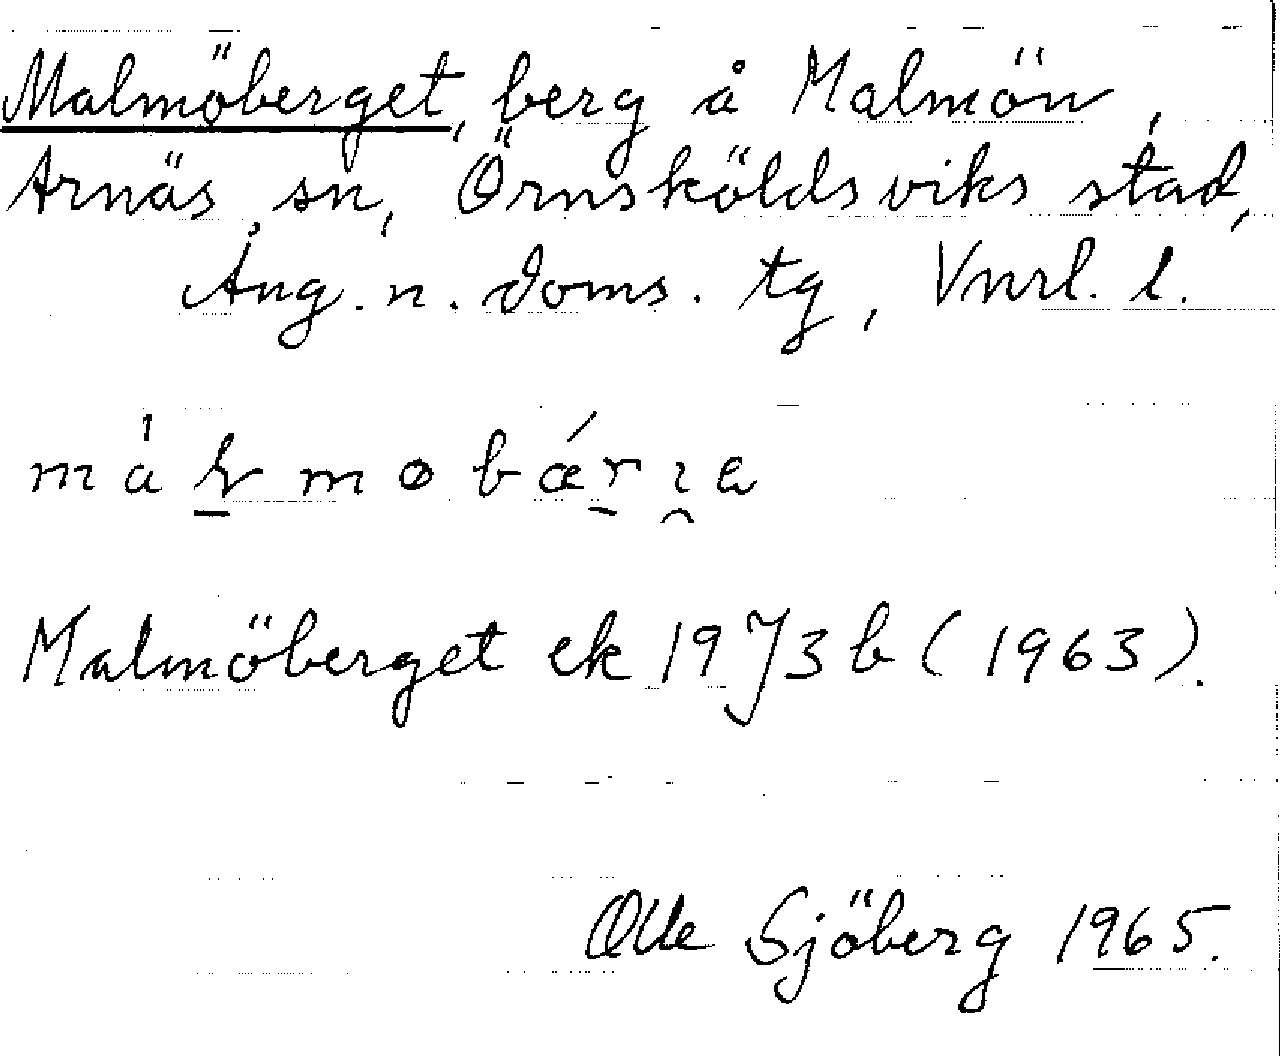 Malmöberget, berg å Malmön,
Arnäs sn, Örnsköldsviks stad,
Ång. n. doms. tg, Vnrl. l.
Malmöberget ek 19 J 3 b (1963).
Olle Sjöberg 1965.